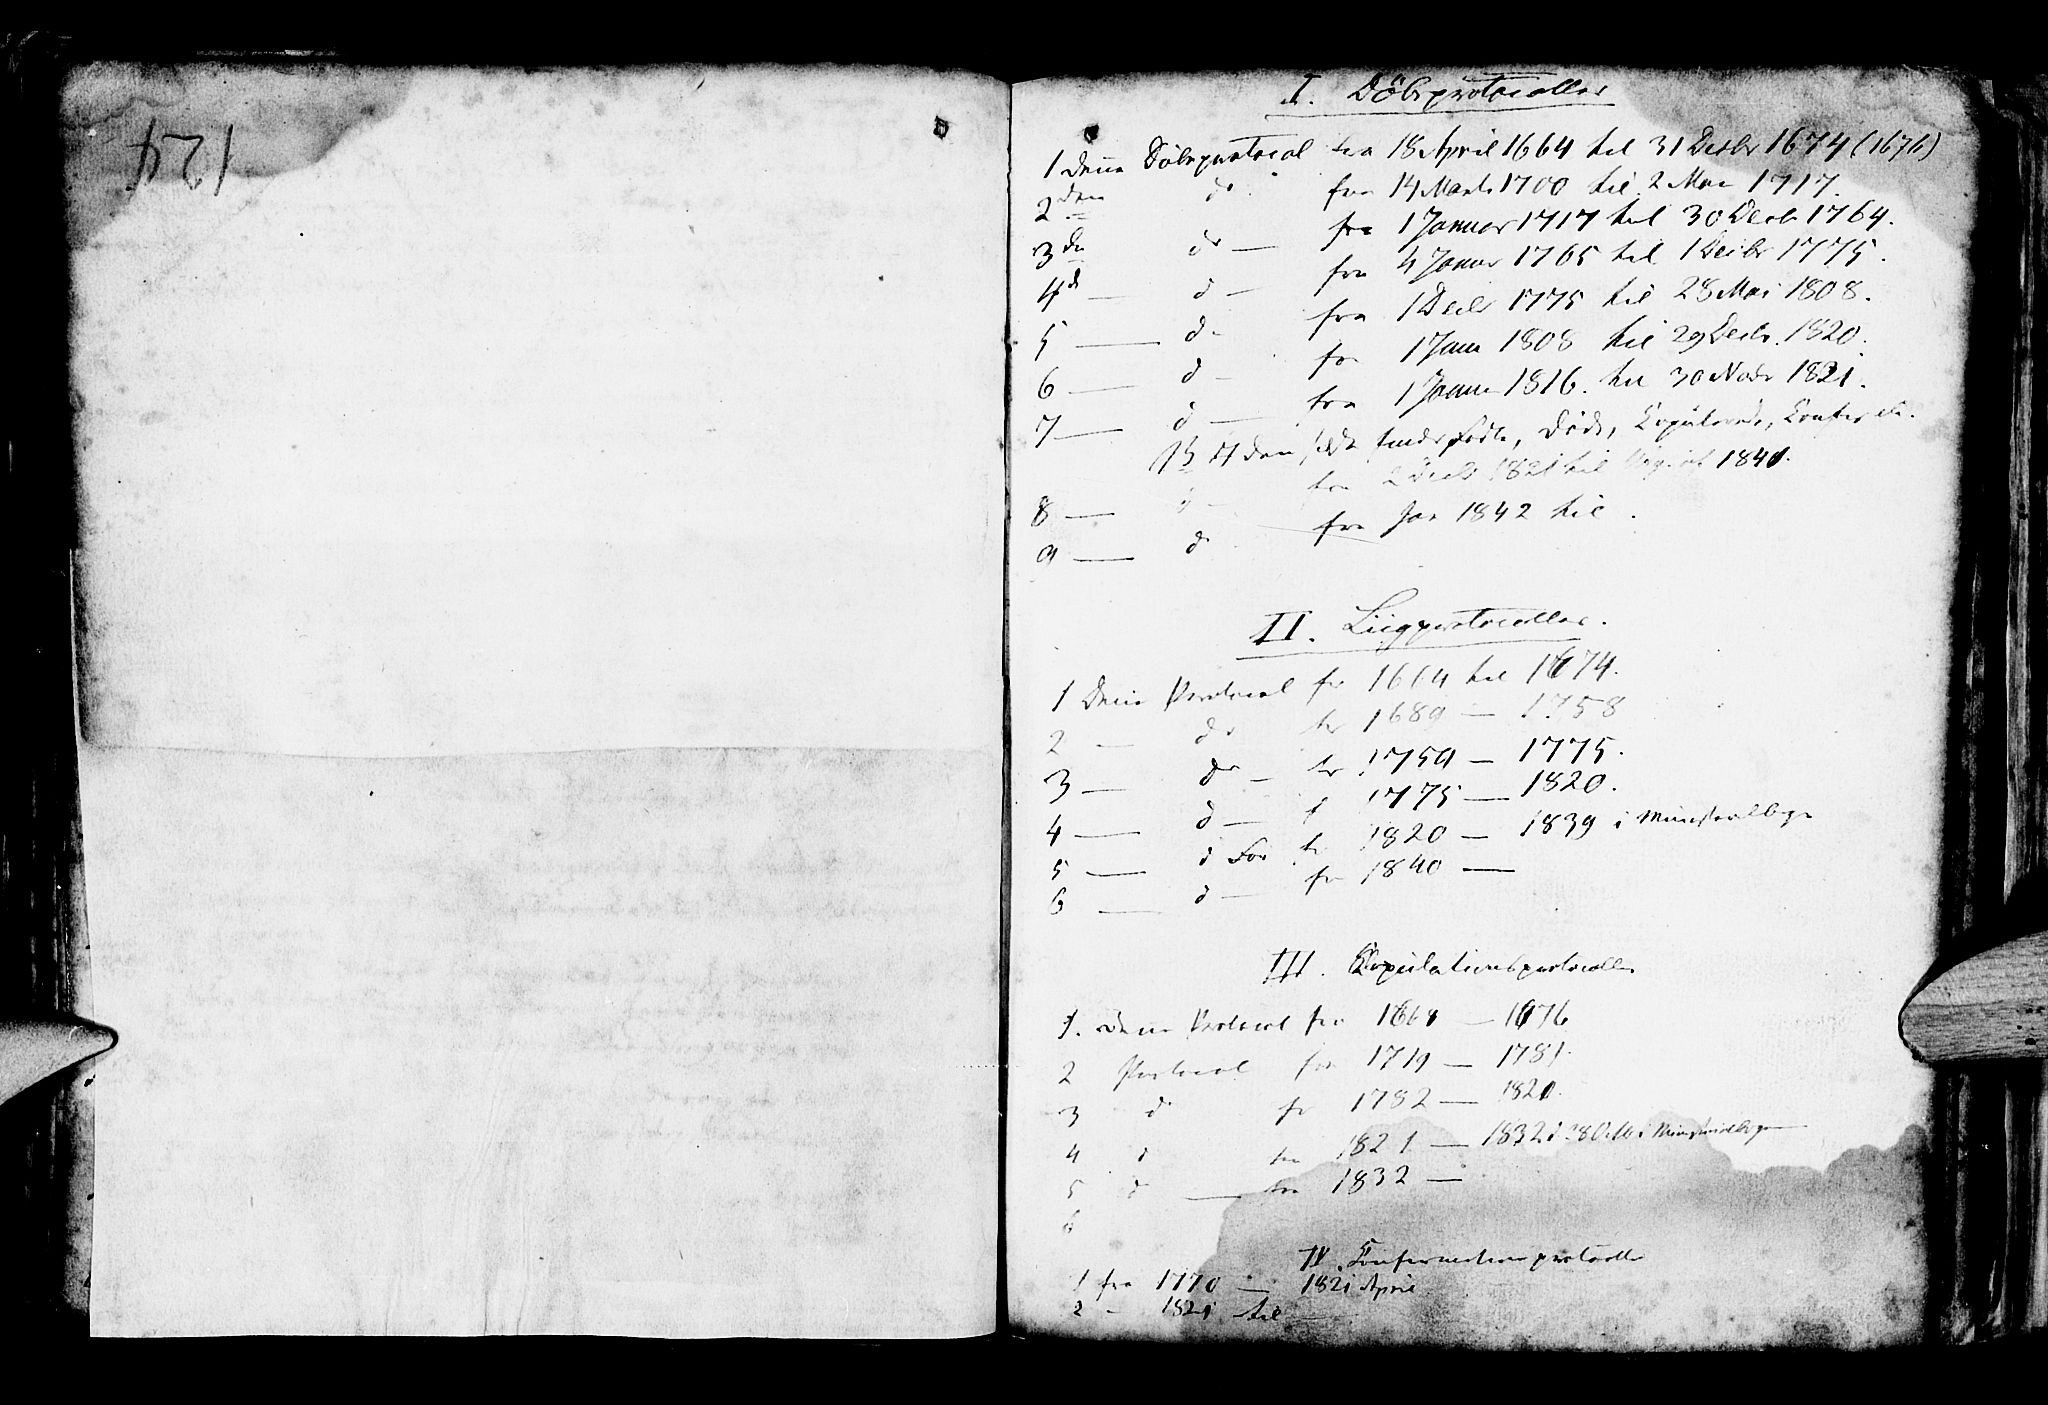 124
I. Döbsprotocoller
1 denne Döbsprotocol fra 18 April 1664 til 31 Decbr 1674 (1676)
2den do fra 14 Marts 1700 til 2 Mai 1717.
3die do — fra 1 Januar 1717 til 30 Decbr 1764.
4de — do — fra 4 Januar 1765 til 1 Decbr 1775.
5 — do fra 1 Decbr 1775 til 28 Mai 1808.
6 — do — fra 1 Juni 1808 til 29 Decbr. 1820.
7 — do — fra 1 Januar 1816. til 30 Novbr 1821.
Födte, Döde, Copulerede, Confir
8 — do — fra 2 Decbr 1821 til 1841.
9 — do fra Jan 1842 til .
II. Liigprotocoller.
1 Denne Protocol fra 1664 til 1674.
2 — do fra 1689 — 1758
3 — do — fra 1759 — 1775.
4 — do — f 1775 — 1820.
5 — do fra 1820 — 1839 i Ministerialbogen
6 — do — fra 1840 —
III. Copulationsprotocoller
1. Denne Protocol fra 1668 — 1676
2 Protocol fra 1719 — 1781.
3 do fr 1782 — 1820.
4 do fra 1821 — 1832 i Ministerialbogen
5 do — fra 1832 —
6
IV. Confirmationsprotocoller
1 fra 1770 — 1821 April
2 — 1821 til —